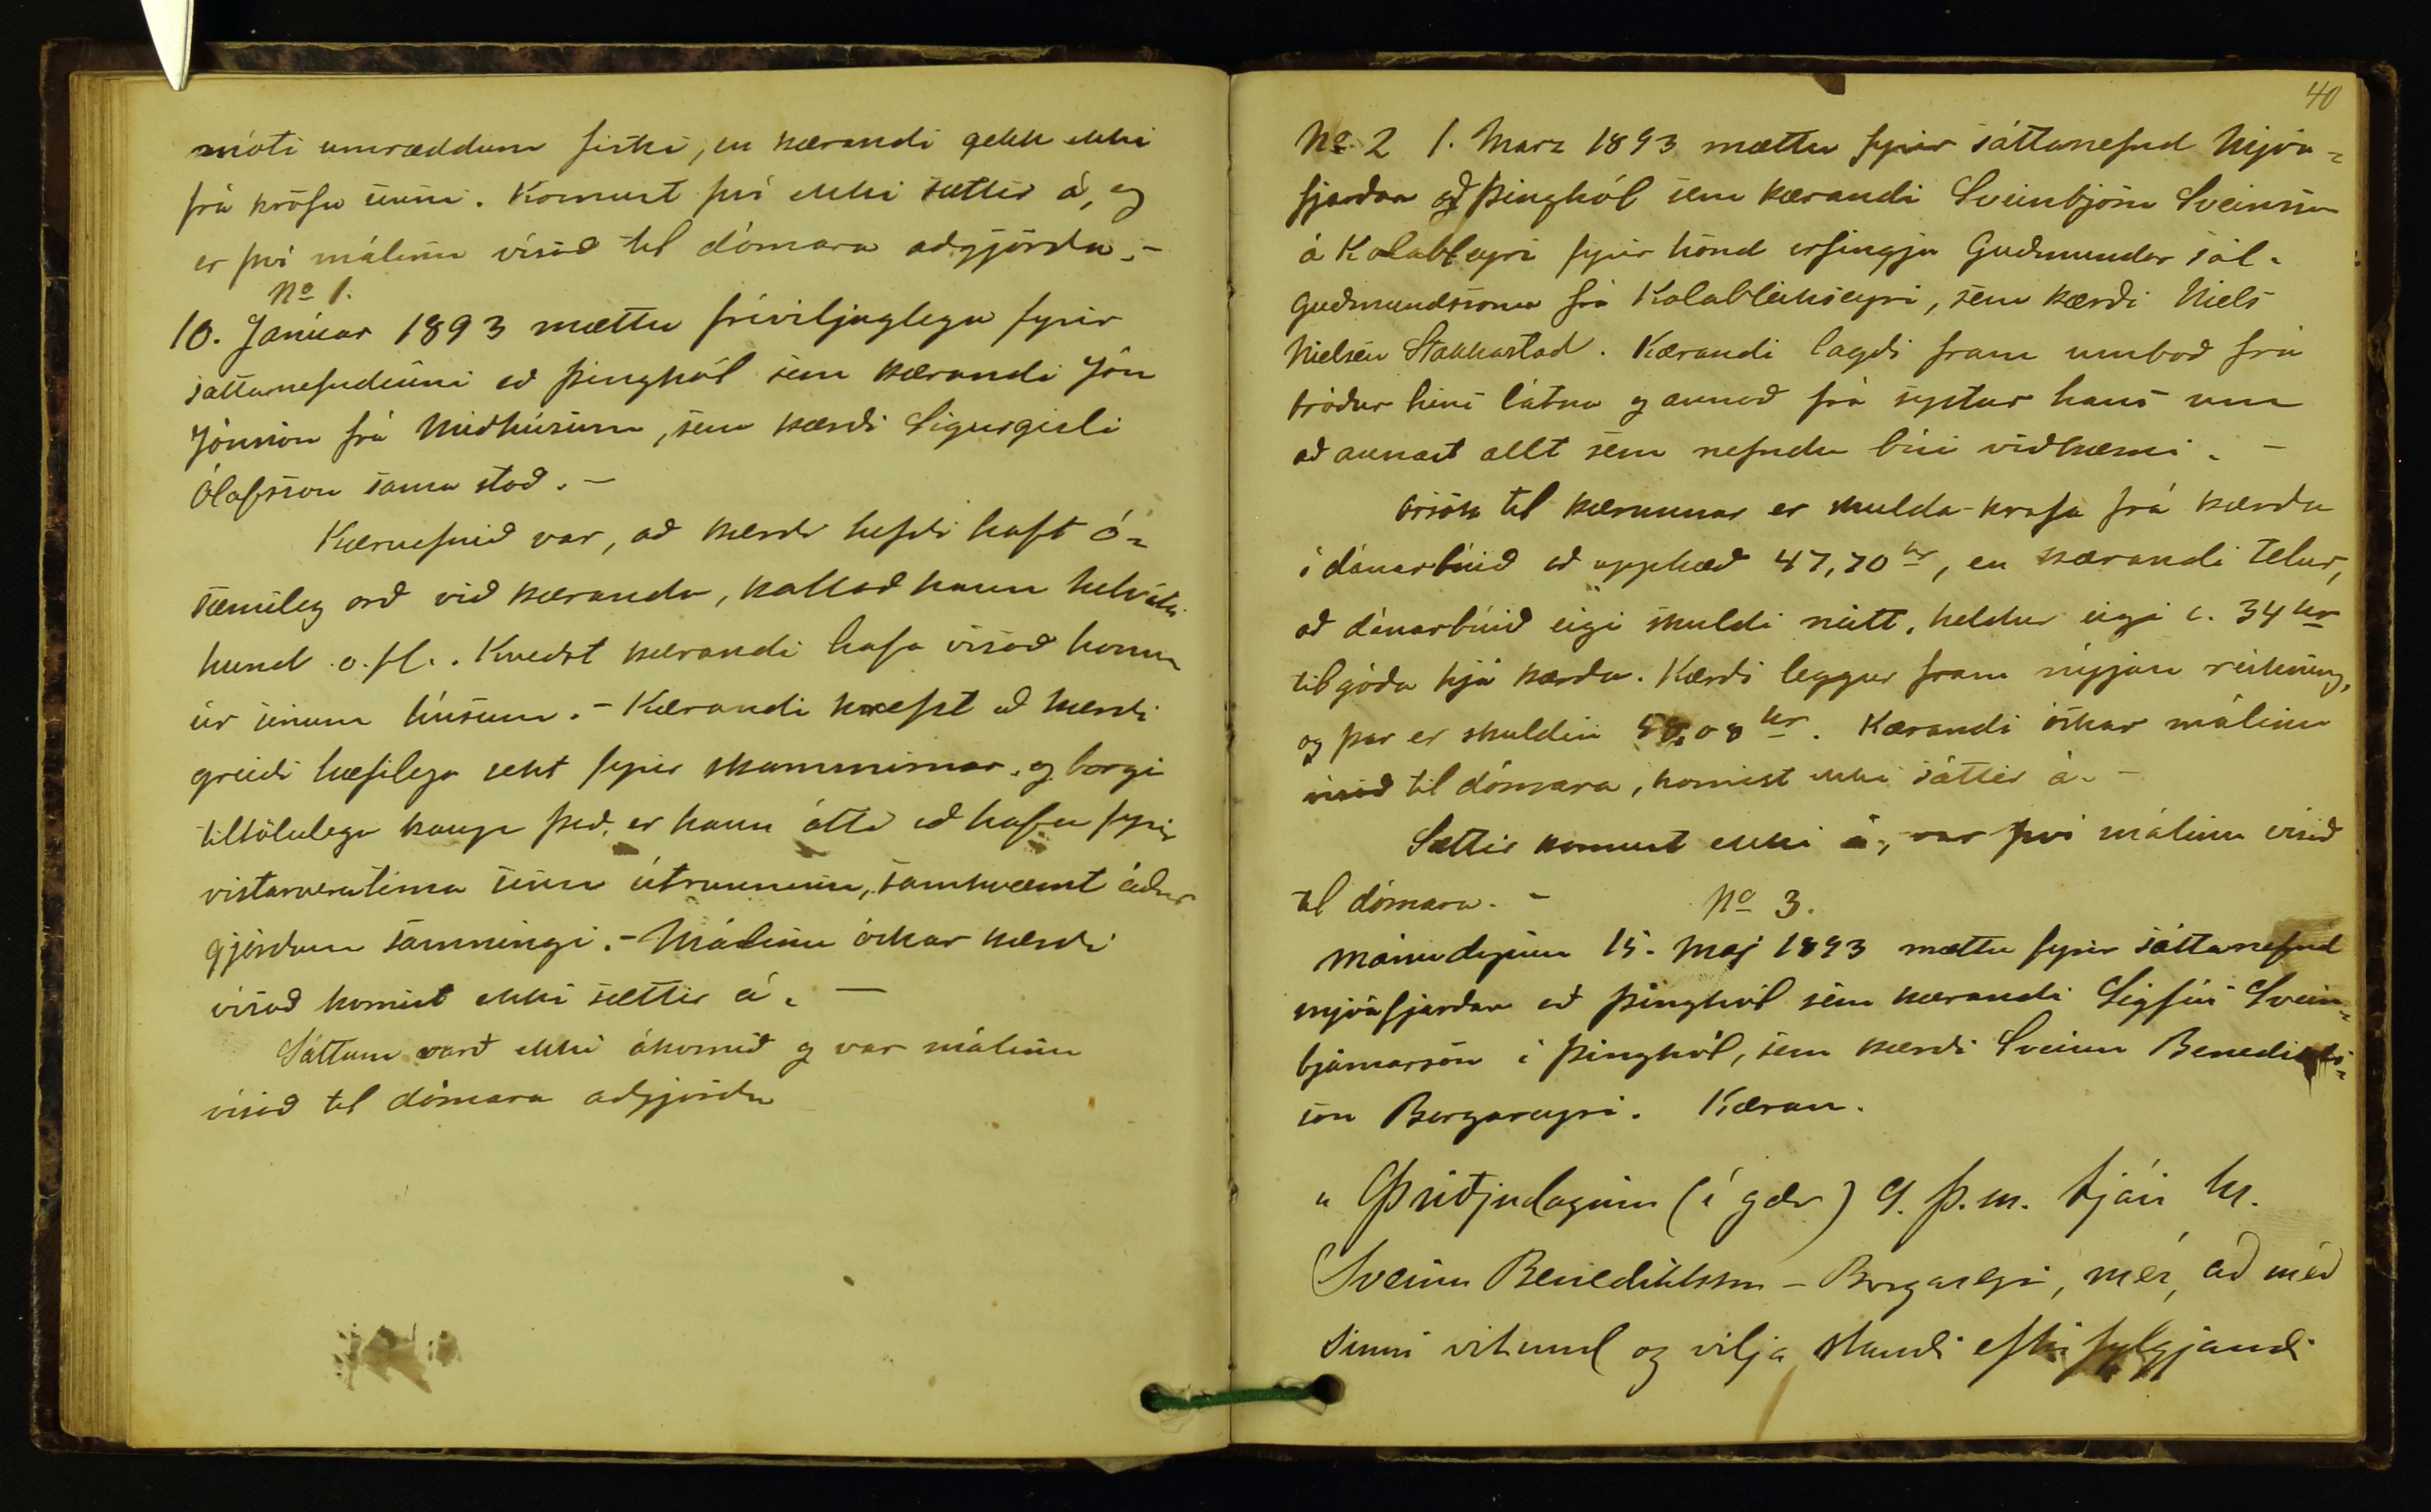 móti umræddum fiski, en kærandi gekk ekki
frá kröfu sinni. Komust því ekki sættir á, og
er því málinu vísað til dómara aðgjörða. -
No 1.
10. Janúar 1893 mættu fríviljuglega fyrir
sáttanefndinni að Þinghól sem kærandi Jón
Jónsson frá Miðhúsum, sem kærði Sigurgísli
Ólafsson sama stað. -
Kæruefnið var, að kærði hefði haft ó=
sæmileg orð við kæranda, kallað hann helvítis
hund o. fl. . Kveðst kærandi hafa vísað honum
úr sínum húsum. - Kærandi krefst að kærði
greiði hæfilega sekt fyrir skammirnar, og borgi
tiltölulega kaup það, er hann átti að hafa fyrir
vistarverutíma sinn útrunninn, samkvæmt áður
gjörðum samningi. - Málinu óskar kærði
vísað komist ekki sættir á. -
Sáttum varð ekki ákomið og var málinu
vísað til dómara aðgjörða
40
No 2 1. Marz 1893 mættu fyrir sáttanefnd Mjóa=
fjarðar að Þinghól sem kærandi Sveinbjörn Sveinsson
á Kolableyri fyrir hönd erfingja Guðmundar sál.
Guðmundssonar frá Kolableikseyri, sem kærði Niels
Nielsen Stakkastað. Kærandi lagði fram umboð frá
bróður hins látna og annað frá systur hans um
að annast allt sem nefndu búi viðkæmi. -
Orsök til kærunnar er skulda-krafa frá kærða
í dánarbúið að upphæð 47,70 kr, en kærandi telur,
að dánarbúið eigi skuldi neitt, heldur eigi c. 34 kr
til góða hjá kærða. Kærði leggur fram nýjan reikning,
og þar er skuldin 08 kr. Kærandi óskar málinu
vísað til dómara, komist ekki sáttir á. -
Sættir komust ekki á, var því málinu vísað
til dómara. - No 3.
Mánudaginn 15. Maj 1893 mættu fyrir sáttanefnd
Mjóafjarðar að Þinghól sem kærandi Sigfús Svein=
bjarnarson í Þinghól, sem kærði Sveinn Benedikts=
son Borgareyri. Kæran.
„ Þriðjudaginn (í gær) 9. þ. m. tjáir hr.
Sveinn Benediktsson - Borgareyri, mér, að með
sinni vitund og vilja standi eftirfylgjandi